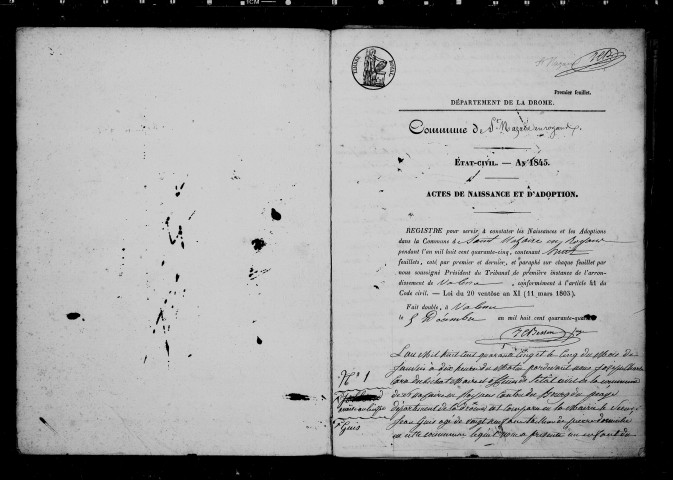 Premier feuillet.
DÉPARTEMENT DE LA DROME.
Commune de St Nazaire en royans.
ÉTAT-CIVIL. — AN 1845.
ACTES DE NAISSANCE ET D'ADOPTION.
REGISTRE pour servir à constater les Naissances et les Adoptions
dans la Commune de Saint Nazaire en Royans
pendant l'an mil huit cent quarante-cinq, contenant huit
feuillets, coté par premier et dernier, et paraphé sur chaque feuillet par
nous soussigné Président du Tribunal de première instance de l'arron-
dissement de Valence, conformément à l'article 41 du
Code civil. — Loi du 20 ventôse an XI (11 mars 1803).
Fait double, à Valence
le 5 Décembre an mil huit cent quarante-quatre
L'an mil huit cent quarante cinq et le cinq du mois de
Janvier à dix heures du matin pardevant nous Joseph
Maire et officier de l'état civil de la commune
de St Nazaire en Royans Canton du Bourg du péage
département de la Drôme est comparu en la Mairie le sieur
Jean Guis agé de vingt ans tailleur de pierre domicilié
en cette commune lequel nous a présenté un enfant du
No 1
Guis